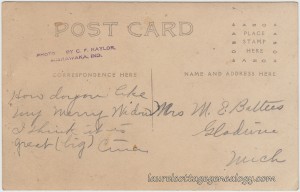 POST CARD
PLACE
STAMP
HERE
PHOTO BY C. F. NAYLOR
MISHAWAKA, IND.
CORRESPONDENCE HERE
NAME AND ADDRESS HERE
How do you like
my Merry Widow
I think it is
great (big)
Mrs M. E. Betters
Gladwin
Mich
laurelcottagegenealogy.com